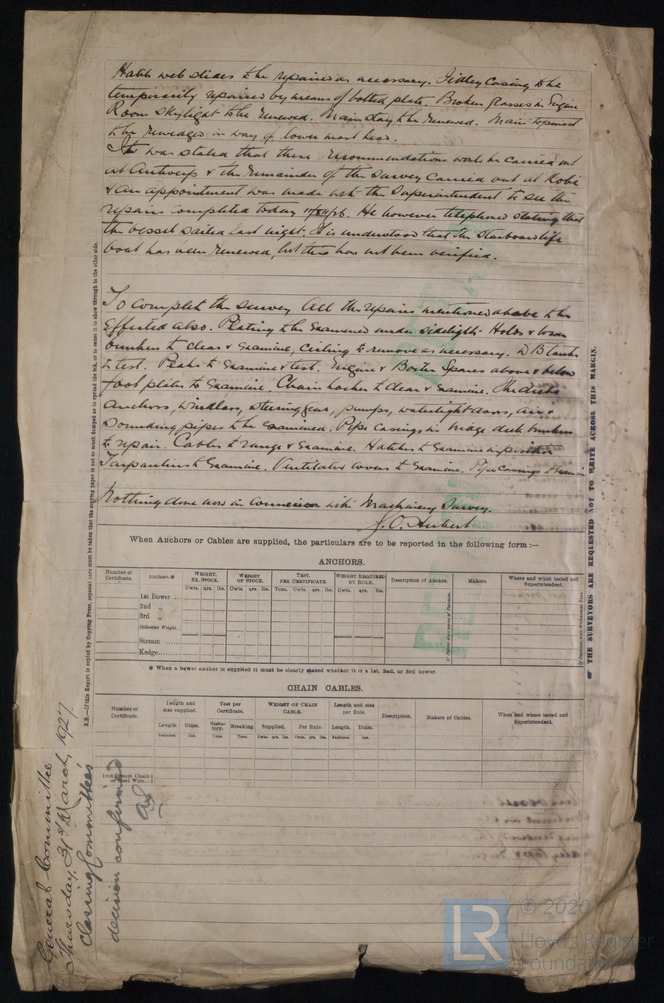 Hatch web slides to be repaired as necessary. Fidley Casing to be
temporarily repaired by means of bolted plate. Broken glasses in Engine
Room skylight to be renewed. Main stay to be renewed. Main topmast
to be renewed in way of lower mast head.
It was stated that these recommendations would be carried out
at Antwerp & the remainder of the Survey carried out at Kobe
& an appointment was made with the Superintendent to see the
repairs completed today. He however telephoned stating that
the vessel sailed last night. It is understood that the starboard life
boat has been renewed, but this has not been verified.
To complete the survey All the repairs mentioned above to be
effected also. Plating to be examined under sidelights. Holds & lower
bunkers to clear & examine, ceiling to remove as necessary. D B tanks
to test. Peaks to examine & test. Engine & Boiler Spaces above & below
foot plates to examine. Chain locker to clear & examine. The decks
anchors, windlass, steering gear, pumps, watertight doors, air &
sounding pipes to be examined. Pipe Casings in bridge deck bunkers
to repair. Cables to range & examine. Hatches to examine in position
Tarpaulins to examine. Ventilator covers to examine. Pipe casings
Nothing done now in connexion with Machinery Survey.
J. O. Hubert
When Anchors or Cables are supplied, the particulars are to be reported in the following form:—
ANCHORS.
Number of Certificate. Anchors.* WEIGHT, EX. STOCK. WEIGHT OF STOCK. TEST, PER CERTIFICATE. WEIGHT REQUIRED BY RULE. Description of Anchor. Makers. Where and when tested and Superintendent.
Cwts. qrs. lbs. Cwts. qrs. lbs. Tons. Cwts. qrs. lbs. Cwts. qrs. lbs.
1st Bower ..
2nd "
3rd "
Collective Weight.
Stream
Kedge
* When a bower anchor is supplied it must be clearly stated whether it is a 1st, 2nd, or 3rd bower.
CHAIN CABLES.
Number of Certificate. Length and size supplied. Test per Certificate. WEIGHT OF CHAIN CABLE. Length and size per Rule. Description. Makers of Cables. Where and when tested and Superintendent.
Length. Diam. Statutory. Breaking. Supplied. Per Rule. Length. Diam.
Fathoms. Ins. Tons. Tons. Cwts. qrs. lbs. Cwts. qrs. lbs. Fathoms. Ins.
Iron Stream Chain
or Steel Wire
N.B.—If this Report is copied by Copying Press, especial care must be taken that the copying paper is not so much damped as to spread the ink, or to cause it to show through to the other side.
THE SURVEYORS ARE REQUESTED NOT TO WRITE ACROSS THIS MARGIN.
General Committee
Thursday, 31st March, 1927.
Classing Committee's
decision confirmed
© 2020
Lloyd's Register
Foundation
LR